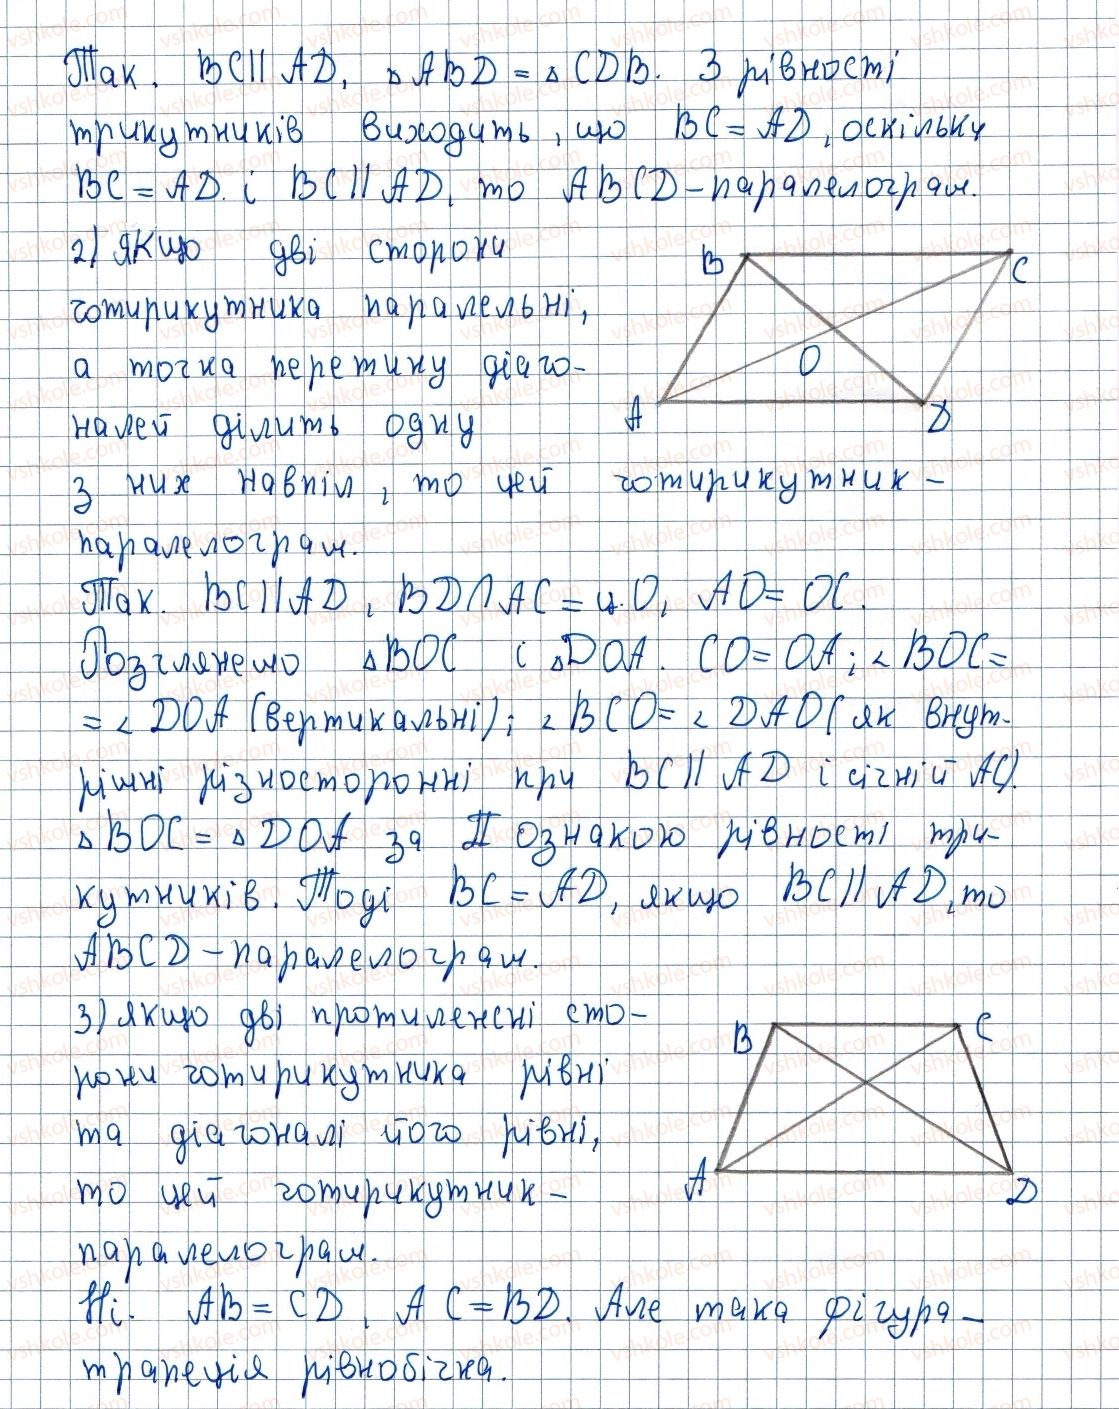 Так. BC || AD, ▵ ABD = ▵ CDB. З рівності
трикутників виходить, що BC = AD, оскільки
BC = AD. і BC || AD, то ABCD – паралелограм.
2) Якщо дві сторони
чотирикутника паралельні,
а точка перетину діаго-
налей ділить одну
з них навпіл, то цей чотирикутник –
паралелограм.
B C
O
A D
Так. BC || AD, BD ∩ AC = т.O, AO = OC.
Розглянемо ▵ BOC і ▵ DOA. CO = OA; ∠ BOC =
= ∠ DOA (вертикальні); ∠ BCO = ∠ DAO (як внут-
рішні різносторонні при BC || AD і січній AC).
▵ BOC = ▵ DOA за II ознакою рівності три-
кутників. Тоді BC = AD, якщо BC || AD, то
ABCD – паралелограм.
3) Якщо дві протилежні сто-
рони чотирикутника рівні
та діагоналі його рівні,
то цей чотирикутник –
паралелограм.
B C
A D
Ні. AB = CD, AC = BD. Але така фігура –
трапеція рівнобічна.
vshkole.com